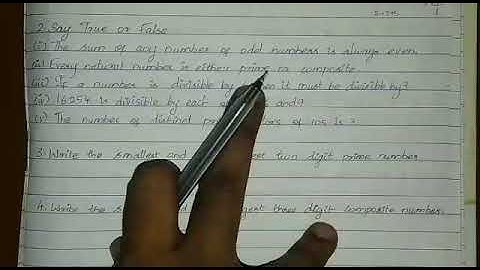 2. Say True or False
(i) The sum of any number of odd numbers is always even.
(ii) Every natural number is either prime or composite
(iii) If a number is divisible by it must be divisible by
(iv) 16254 is divisible by each and 9
(v) The number of distinct of 105 is 3
3. Write the smallest and two digit prime number
4. Write the three digit composite number.